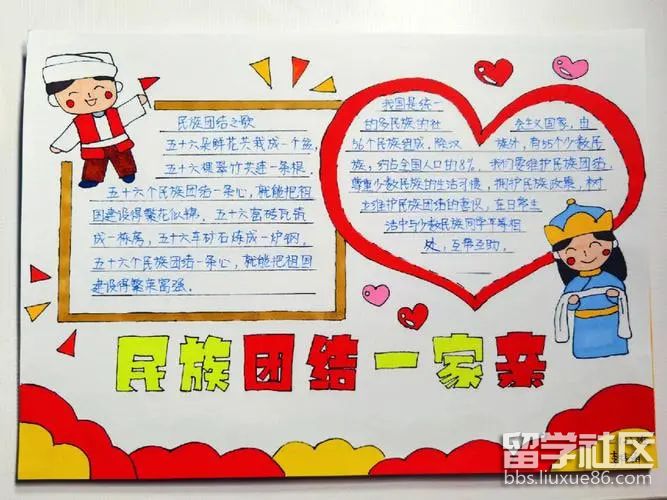 民族团结之歌
五十六朵鲜花关栽成一个盆,
五十六棵翠竹共连一条根.
五十六个民族团结一条心,就能把祖
国建设得繁花似锦. 五十六窑砖瓦筑
成一栋房, 五十六车矿石炼成一炉钢,
五十六个民族团结一条心,就能把祖国
建设得繁荣富强.
我国是统一
的多民族的社 会主义国家,由
56个民族组成,除汉 族外,有55个少数民
族,约占全国人口的8%,我们要维护民族团结,
尊重少数民族的生活习惯,拥护民族政策,树
立维护民族团结的意识,在日常生
活中与少数民族同学平等相
处,互帮互助.
民族团结一家亲
留学社区
bbs.liuxue86.com